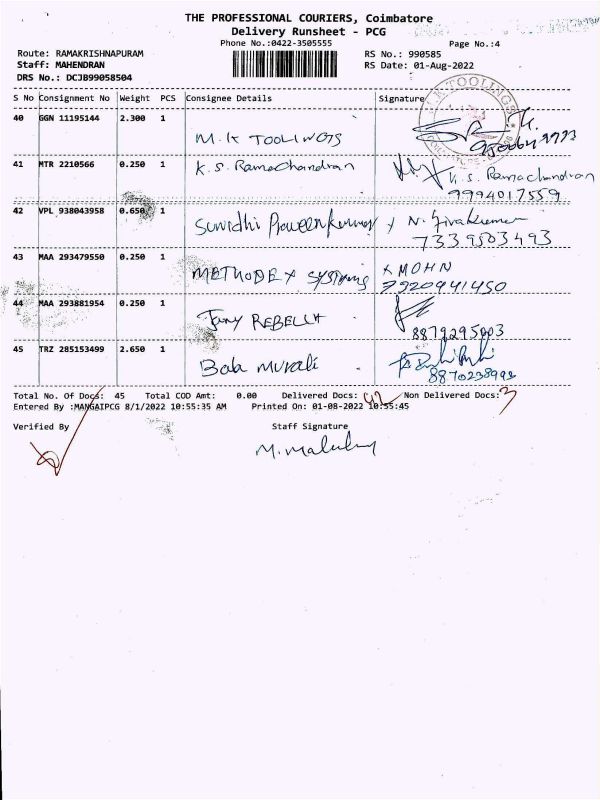 THE PROFESSIONAL COURIERS, Coimbatore
Delivery Runsheet - PCG
Phone No.:0422-3505555
Page No.:4
Route: RAMAKRISHNAPURAM
RS No.: 990585
Staff: MAHENDRAN
RS Date: 01-Aug-2022
DRS No.: DCJB99058504
S No Consignment No Weight PCS Consignee Details Signature
40 GGN 11195144 2.300 1
M.K TOOLINGS
41 MTR 2210566 0.250 1
K.S. Ramachandran K.S. Ramachandran
9994017559
42 VPL 938043958 0.650 1
Sunidhi Praveenkumar N. Sivakumar
7339503493
43 MAA 293479550 0.250 1
METHODEX SYSTEMS MOHN
7920941450
44 MAA 293881954 0.250 1
Jany REBELLA
8879295003
45 TRZ 285153499 2.650 1
Bala Murali
8870238992
Total No. Of Docs: 45 Total COD Amt: 0.00 Delivered Docs: 42 Non Delivered Docs: 3
Entered By :MANGAIPCG 8/1/2022 10:55:35 AM Printed On: 01-08-2022 10:55:45
Verified By Staff Signature